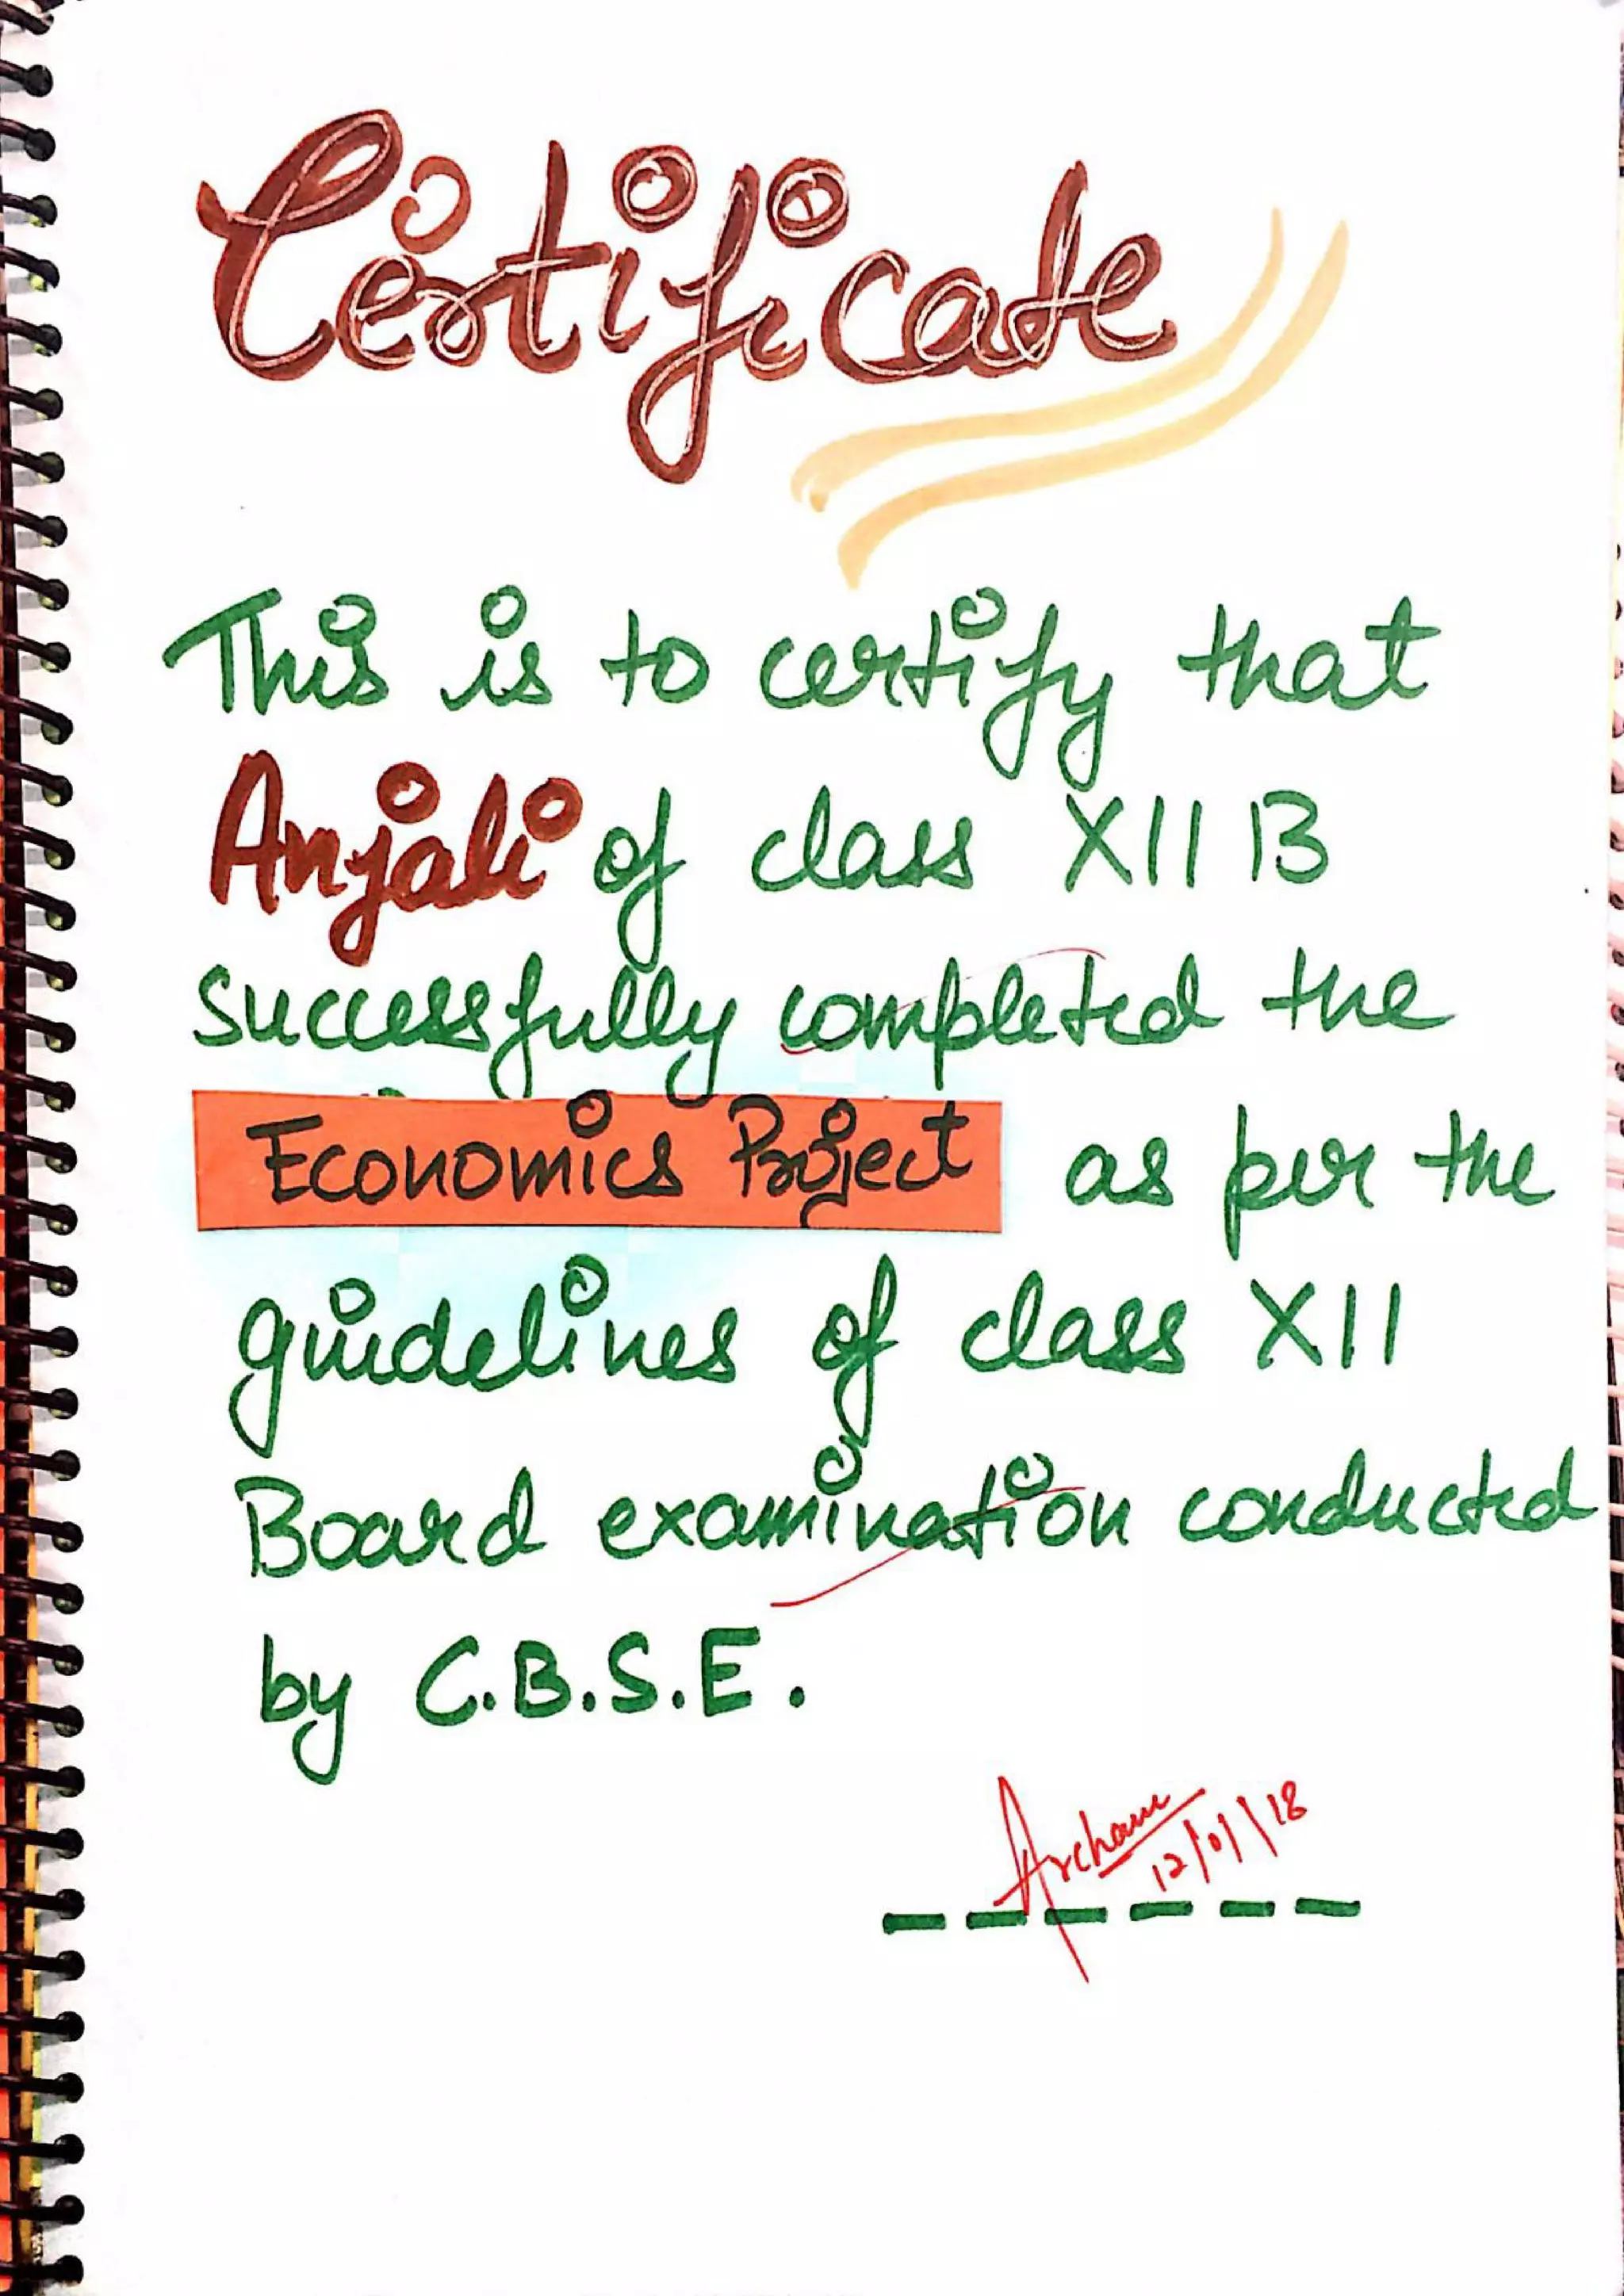 Certificate
This is to certify that
Anjali of class XII B
successfully completed the
Economics Project as per the
guidelines of class XII
Board examination conducted
by C.B.S.E.
12/01/18